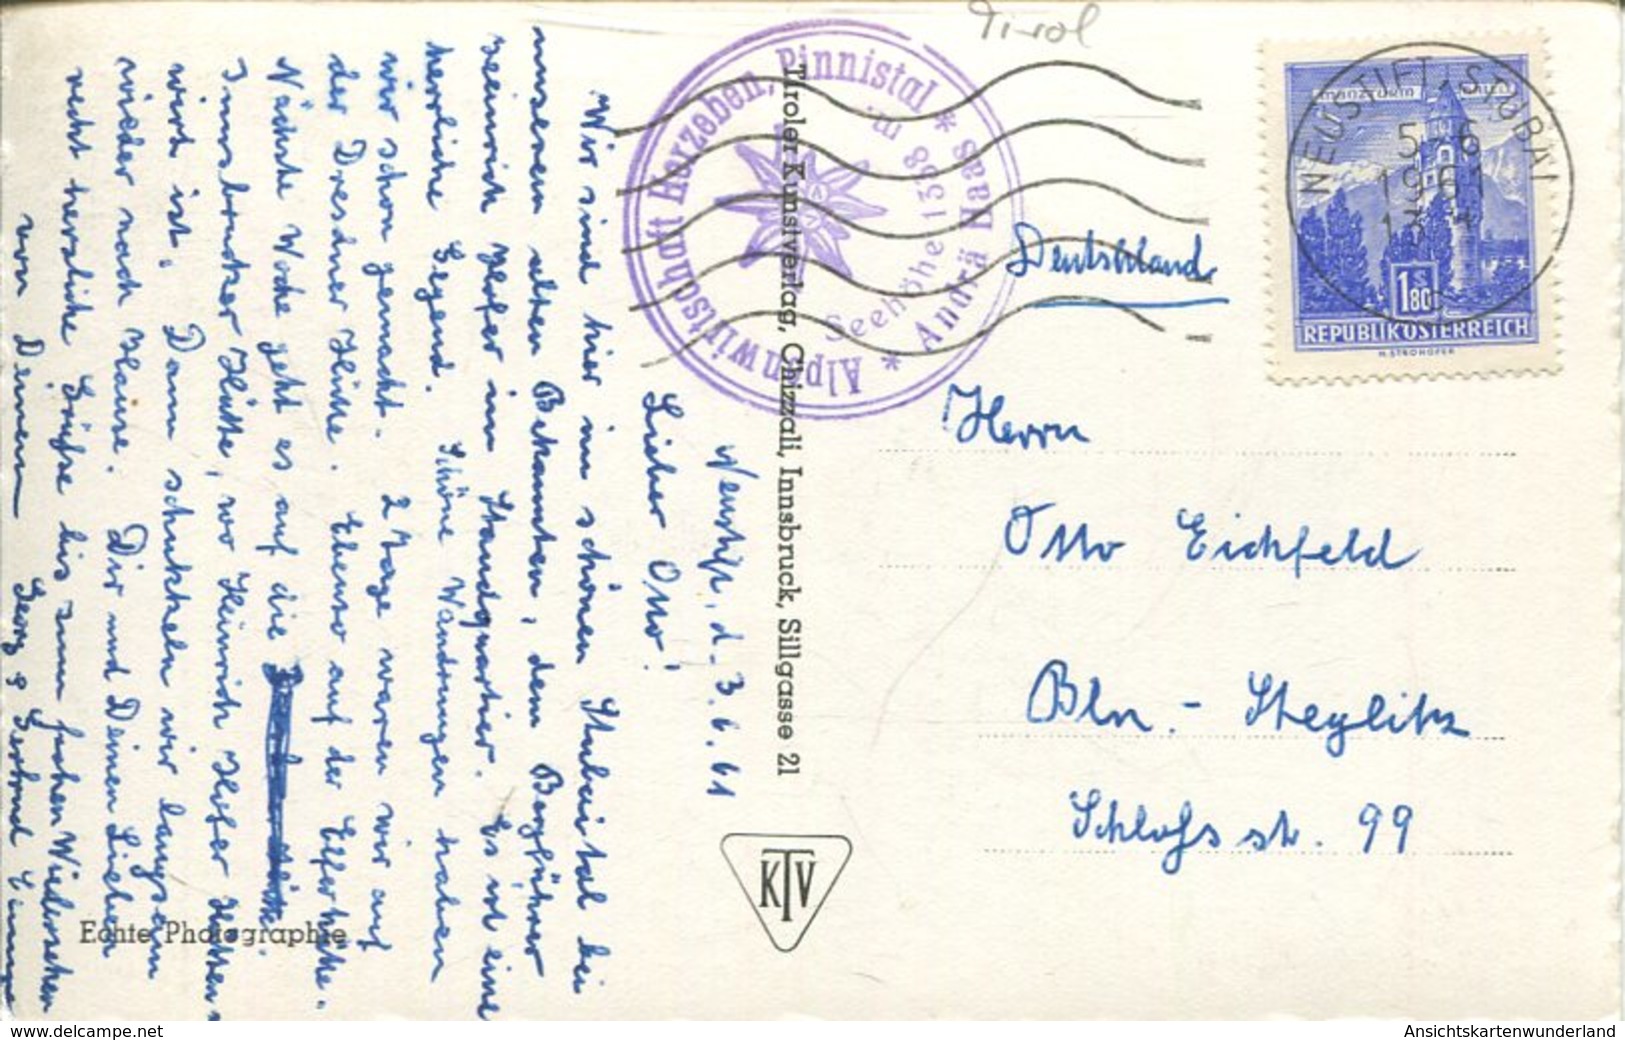 Tirol
Alpenwirtschaft Herzeben, Pinnistal * Andrä Haas *
Seehöhe 1338 m
NEUSTIFT, STUBAI
5 - 6
1961
REPUBLIK ÖSTERREICH
1 S 80
H. STROHOFER
Deutschland
Herrn
Otto Eichfeld
Bln. - Steglitz
Schloßstr. 99
Tiroler Kunstverlag, Chizzali, Innsbruck, Sillgasse 21
KTV
Echte Photographie
Neustift, d. 3.6.61
Lieber Otto!
Wir sind hier im schönen Stubaital bei
unserem alten Bekannten, dem Bergführer
Heinrich Hofer im Standquartier. Es ist eine
herrliche Gegend. Schöne Wanderungen haben
wir schon gemacht. 2 Tage waren wir auf
der Dresdner Hütte. Ebenso auf der Elferhütte.
Nächste Woche geht es auf die
Innsbrucker Hütte, wo Heinrich Hofer Hütten-
wirt ist. Dann schukkeln wir langsam
wieder nach Hause. Dir und Deinen Lieben
recht herzliche Grüße bis zum frohen Wiedersehen
von Deinem Georg & Gertrud
www.delcampe.net
Ansichtskartenwunderland